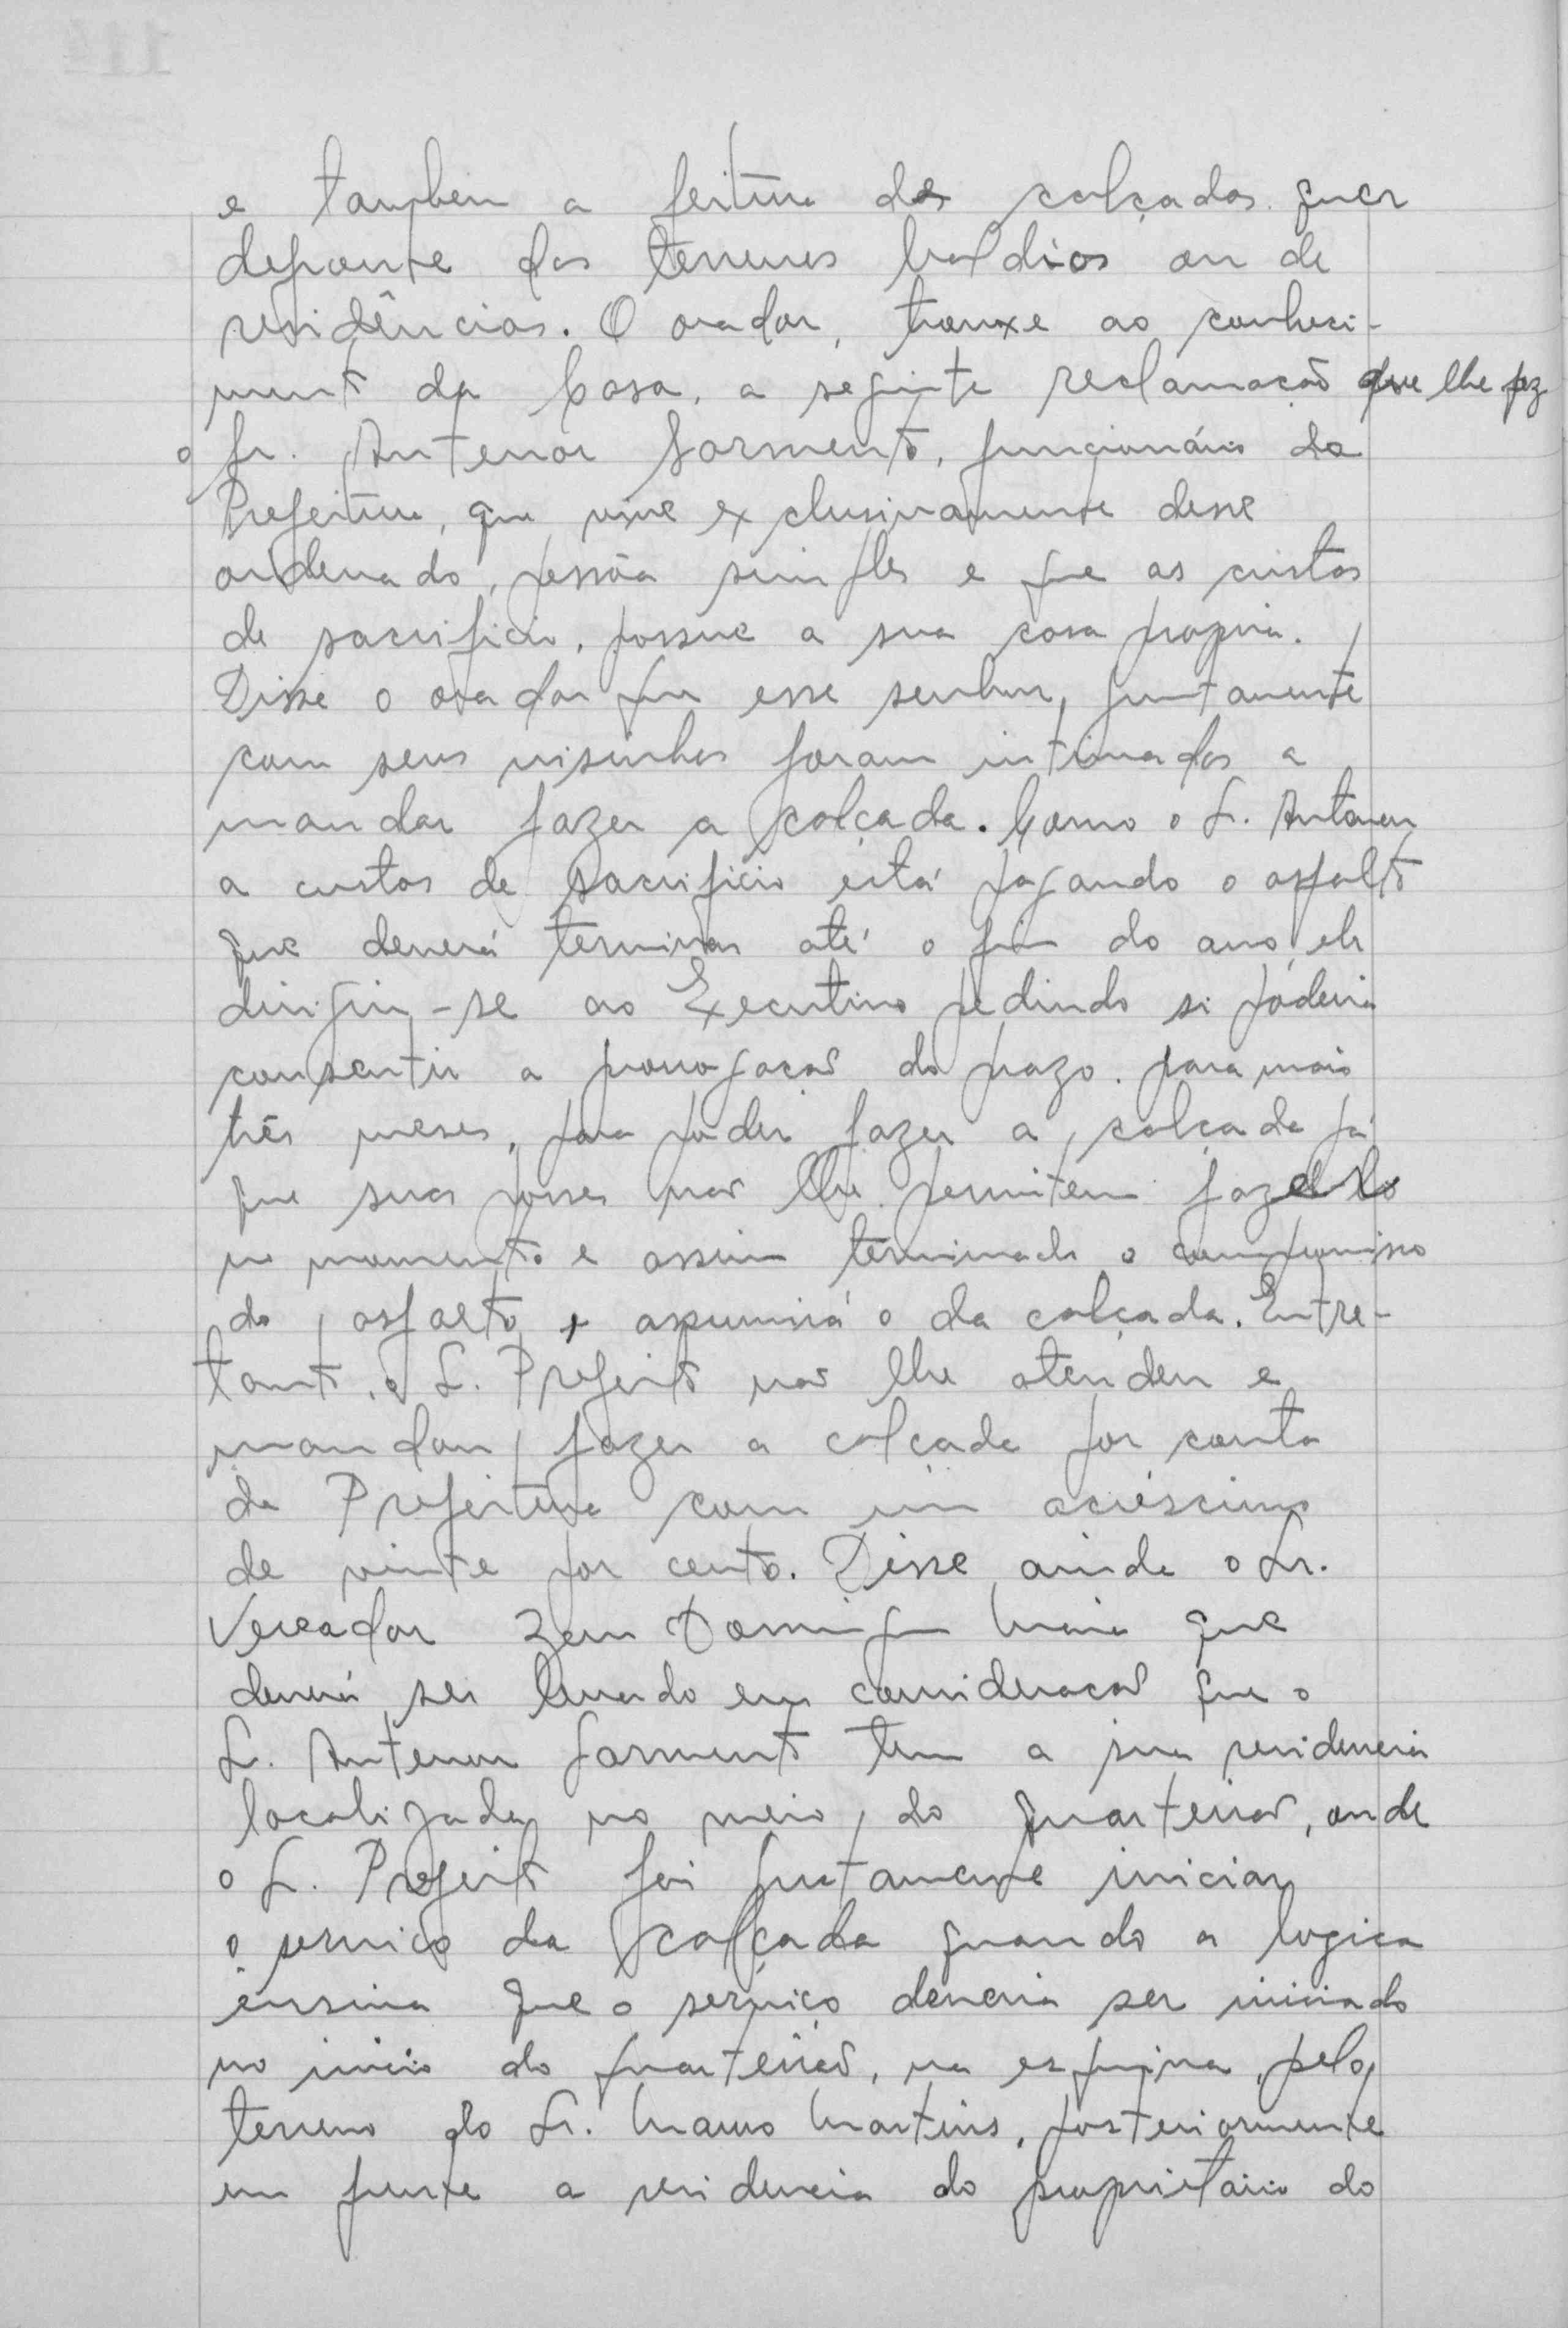 e tambem a feitura das calçadas quer
defronte dos terrenos baldios ou de
residências. O orador, trouxe ao conheci-
mento da Casa, a seguinte reclamação que lhe fez
o Sr. Antenor Sarmento, funcionário da
Prefeitura, que vive exclusivamente desse
ordenado, pessôa simples e que as custas
de sacrificio, possue a sua casa propria.
Disse o orador que esse senhor, juntamente
com seus visinhos foram intimados a
mandar fazer a calçada. Como o Sr. Antenor
a custas de sacrificio está pagando o asfalto
que deverá terminar até o fim do ano, ele
dirigiu-se ao Executivo pedindo si poderia
consentir a prorogação do prazo para mais
três meses, para poder fazer a calçada já
que suas posses não lhe permitem fazê-lo
no momento e assim terminado o compromisso
do asfalto, assumirá o da calçada. Entre-
tanto, o Sr. Prefeito não lhe atendeu e
mandou fazer a calçada por conta
da Prefeitura com um acréscimo
de vinte por cento. Disse ainda o Sr.
Vereador Domingos Maia que
deverá ser levado em consideração que o
Sr. Antenor Sarmento tem a sua residencia
localizada no meio do quarteirão, onde
o Sr. Prefeito foi justamente iniciar
o serviço da calçada quando a logica
ensina que o serviço deveria ser iniciado
no inicio do quarteirão, na esquina, pelo
terreno do Sr. Mauro Martins, posteriormente
em frente a residencia do proprietário do